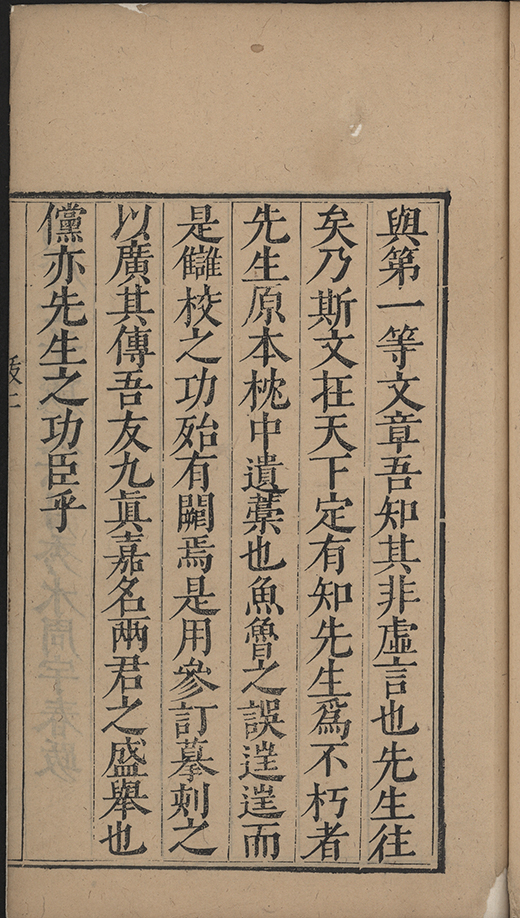 與第一等文章吾知其非虛言也先生往
矣乃斯文在天下定有知先生爲不朽者
先生原本枕中遺藁也魚魯之誤逞逞而
是讎校之功殆有闕焉是用參訂摹刻之
以廣其傳吾友九眞嘉名兩君之盛舉也
儻亦先生之功臣乎